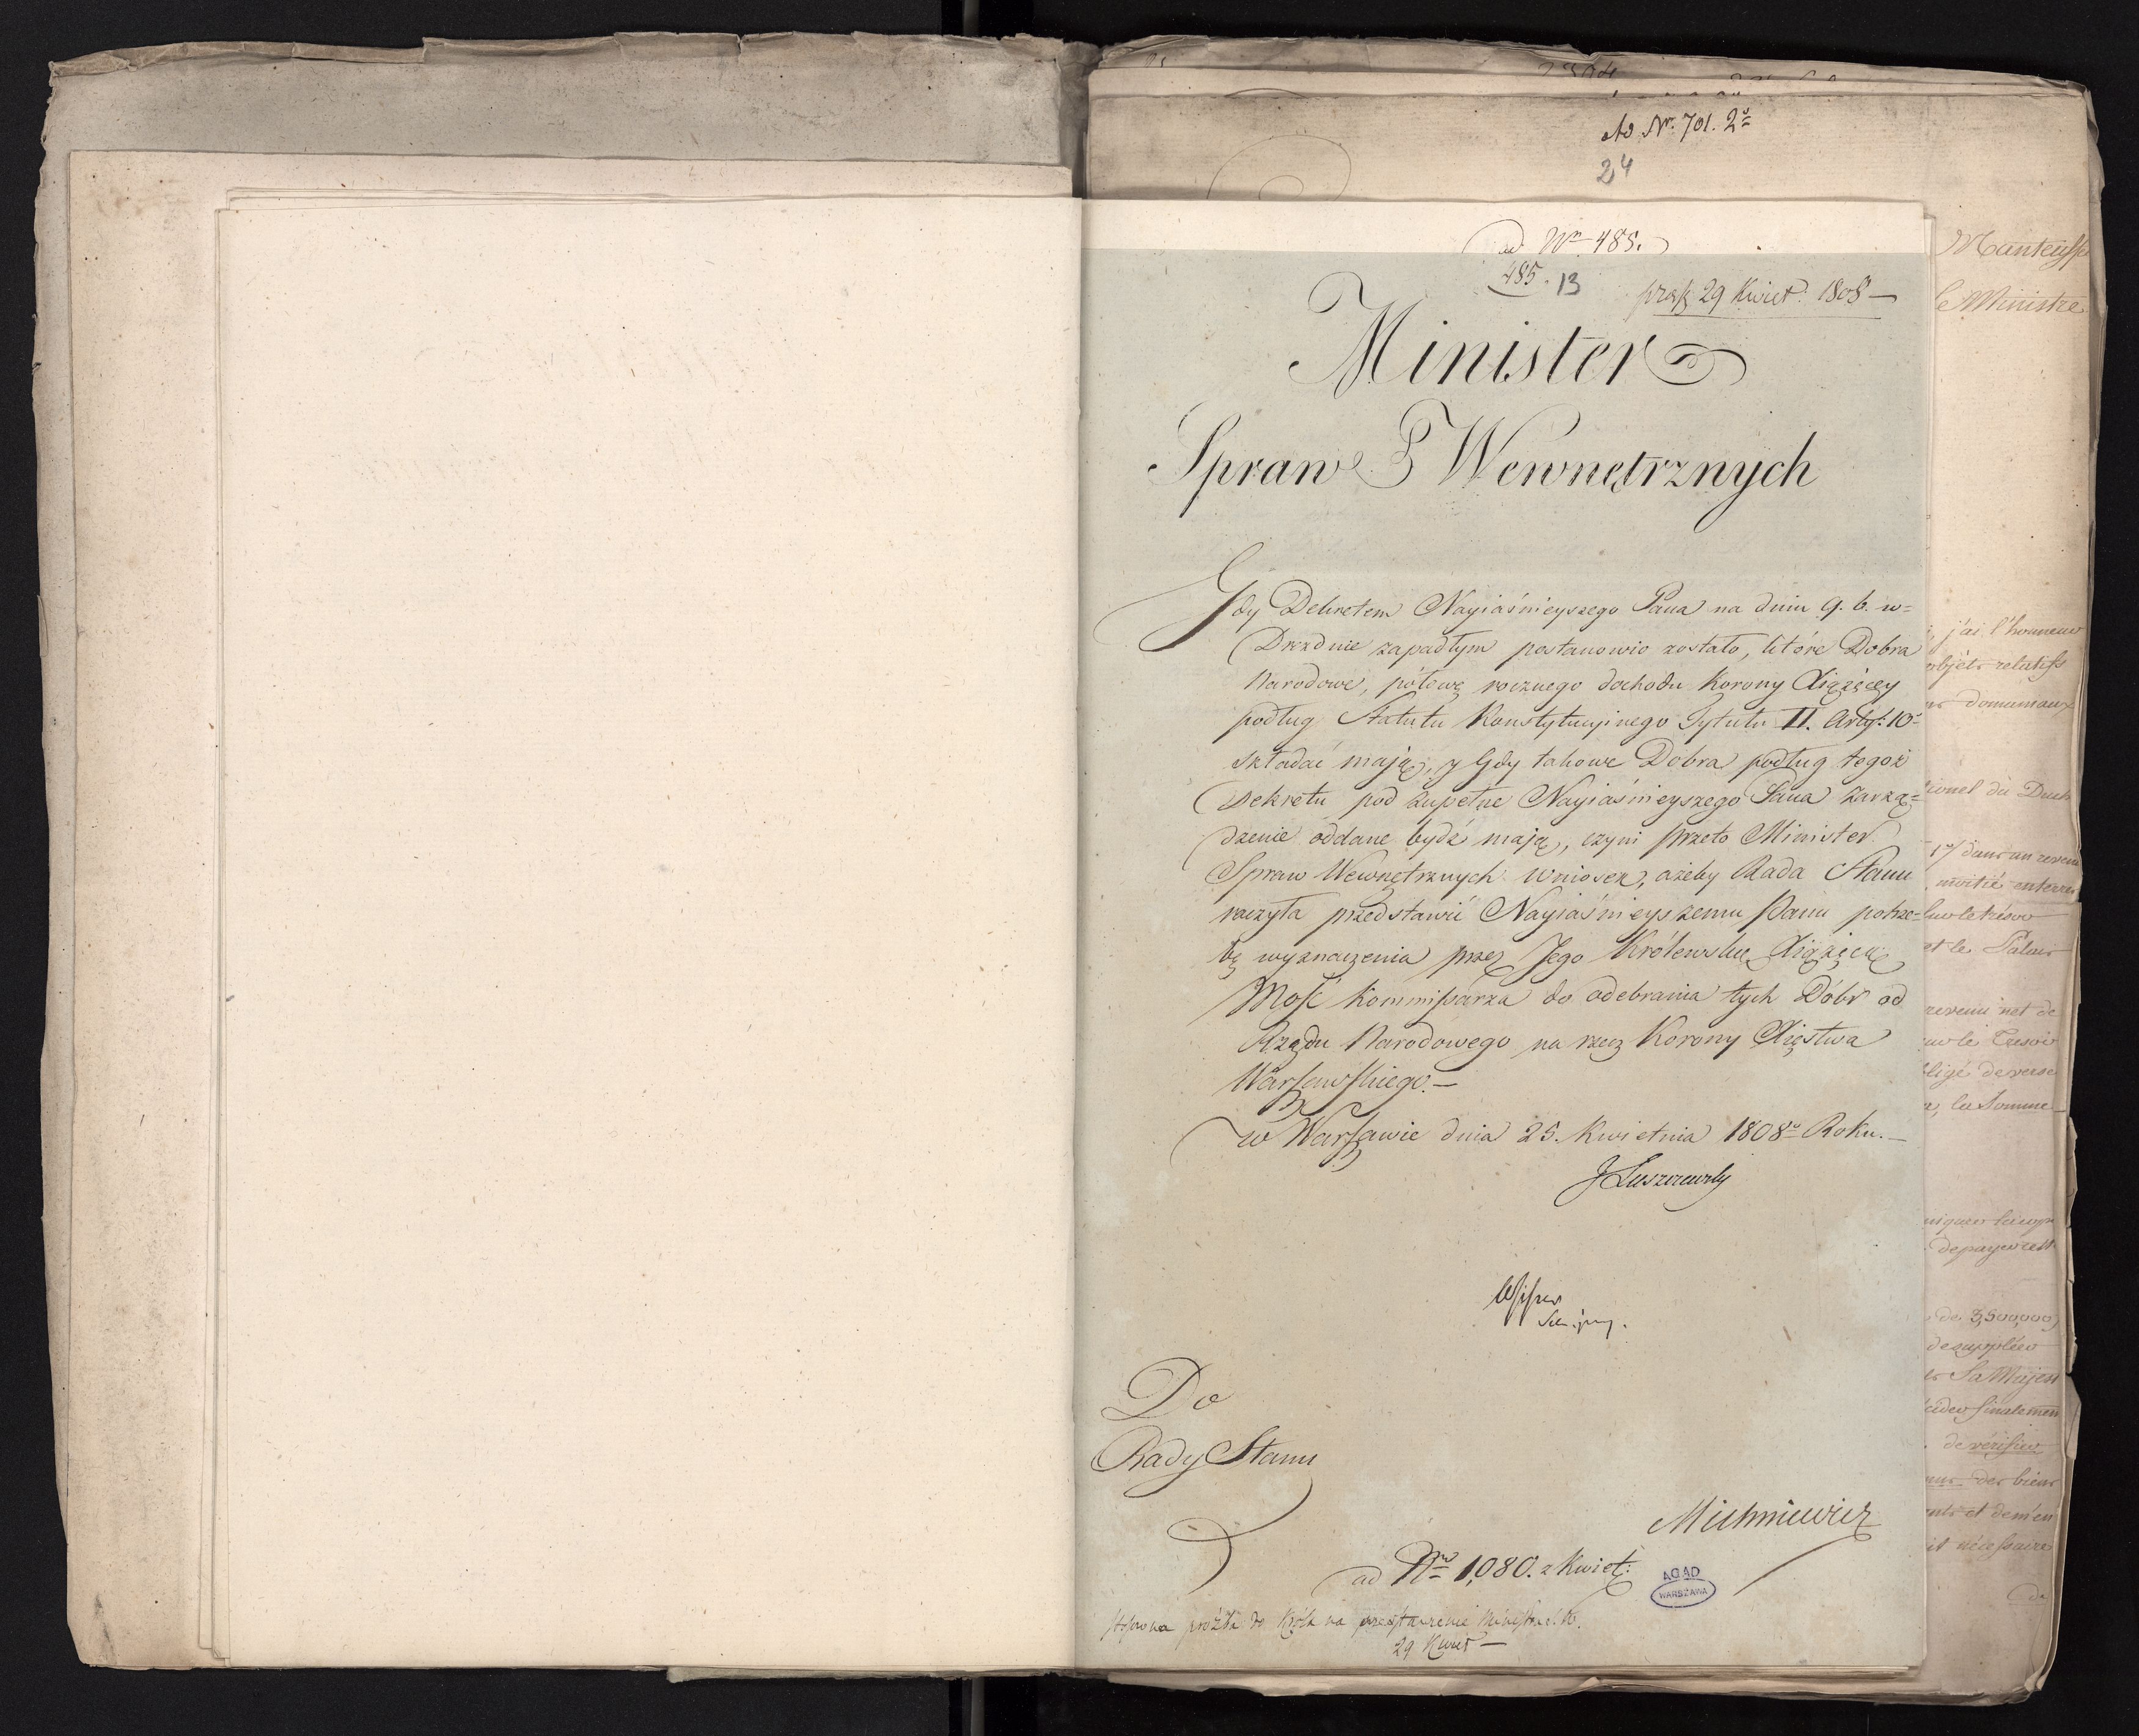 Ad Nr. 701. 2°
24
ad Nr. 485.
485. 13
29 Kwiet: 1808 —
Minister
Spraw Wewnętrznych
Gdy Dekretem Nayiaśnieyszego Pana na dniu 9. b. w=
Dreznie zapadłym postanowio zostało, które Dobra
Narodowe, połowę rocznego dochodu Korony Xiążęcey
podług Statutu Konstytucyinego Tytułu II. Arty: 10°
składać maią, y Gdy takowe Dobra podług tegoż
Dekretu pod zupełne Nayiaśnieyszego Pana zarzą=
dzenie oddane bydź maią, czyni przeto Minister
Spraw Wewnętrznych wniosek, ażeby Rada Stanu
raczyła przedstawić Nayiaśnieyszemu Panu potrze=
bę wyznaczenia przez Jego Królewsko Xiążęcą
Mość Kommissarza do odebrania tych Dóbr od
Rządu Narodowego na rzecz Korony Xięstwa
Warszawskiego. —
w Warszawie dnia 25. Kwietnia 1808° Roku. —
J Łuszczewski
Do
Rady Stanu
Michniewicz
ad Nr 1,080. z Kwiet:
AGAD
WARSZAWA
prożba do Króla na przedstawienie
29 Kwiet —
Manteuffe
le Ministre
j'ai l'honneur
objets relatifs
domaniaux
tionel du Duch
dans un revenu
moitié en terres
sur le trésor
et le Palais
revenu net de
sur le Tresor
blige de verse
la Somme
de 3,500,000
de supplier
Sa Majest
cider finalemen
de vérifier
des biens
it nécessaire
de